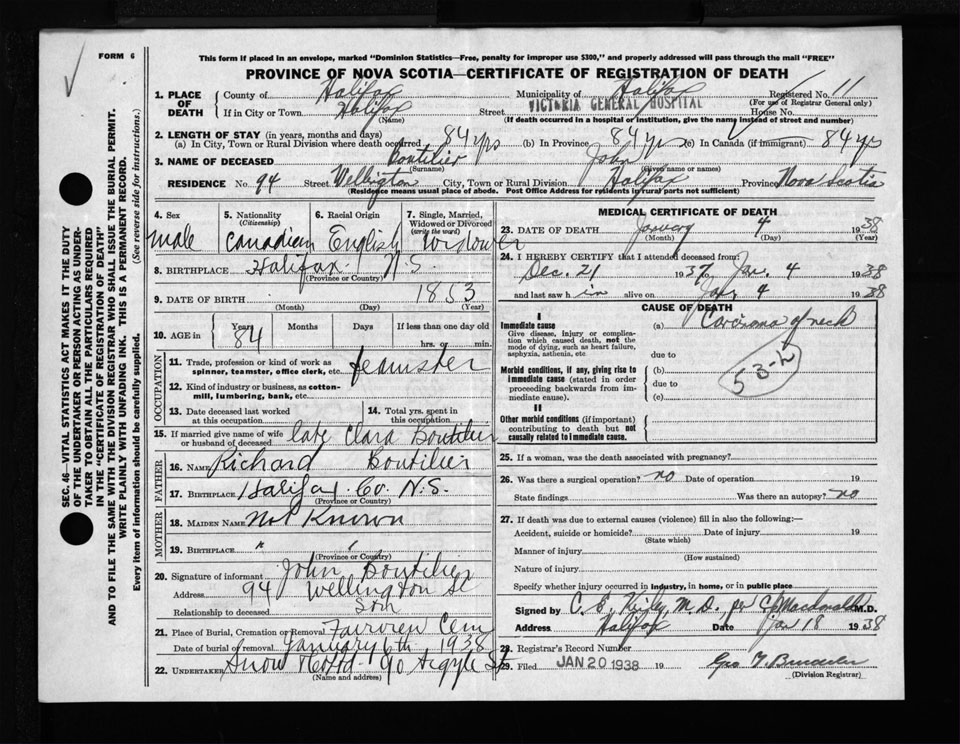 FORM 6
This form if placed in an envelope, marked "Dominion Statistics—Free, penalty for improper use $300," and properly addressed will pass through the mail "FREE"
PROVINCE OF NOVA SCOTIA—CERTIFICATE OF REGISTRATION OF DEATH
SEC. 46—VITAL STATISTICS ACT MAKES IT THE DUTY
OF THE UNDERTAKER OR PERSON ACTING AS UNDER-
TAKER TO OBTAIN ALL THE PARTICULARS REQUIRED
IN THE "CERTIFICATE OF REGISTRATION OF DEATH"
AND TO FILE THE SAME WITH THE DIVISION REGISTRAR WHO SHALL ISSUE THE BURIAL PERMIT.
WRITE PLAINLY WITH UNFADING INK. THIS IS A PERMANENT RECORD.
Every item of information should be carefully supplied. (See reverse side for instructions.)
1. PLACE OF DEATH
County of Halifax Municipality of Halifax Registered No. 11
(For use of Registrar General only)
If in City or Town Halifax Street VICTORIA GENERAL HOSPITAL House No.
(Name) (If death occurred in a hospital or institution, give the name instead of street and number)
2. LENGTH OF STAY (in years, months and days)
(a) In City, Town or Rural Division where death occurred 84 yrs (b) In Province 84 yrs (c) In Canada (if immigrant) 84 yrs
3. NAME OF DECEASED Boutilier John
(Surname) (Given name or names)
RESIDENCE No. 94 Street Wellington City, Town or Rural Division Halifax Province Nova Scotia
(Residence means usual place of abode. Post Office Address for residents in rural parts not sufficient)
4. Sex male
5. Nationality (Citizenship) Canadian
6. Racial Origin English
7. Single, Married, Widowed or Divorced (write the word) Widower
8. BIRTHPLACE Halifax N.S.
(Province or Country)
9. DATE OF BIRTH 1853
(Month) (Day) (Year)
10. AGE in Years 84 Months Days If less than one day old
hrs. or min.
OCCUPATION
11. Trade, profession or kind of work as spinner, teamster, office clerk, etc. teamster
12. Kind of industry or business, as cotton-mill, lumbering, bank, etc.
13. Date deceased last worked at this occupation
14. Total yrs. spent in this occupation
15. If married give name of wife or husband of deceased late Clara Boutilier
FATHER
16. NAME Richard Boutilier
17. BIRTHPLACE Halifax Co. N.S.
(Province or Country)
MOTHER
18. MAIDEN NAME Not Known
19. BIRTHPLACE " "
(Province or Country)
20. Signature of informant John Boutilier
Address 94 Wellington St
Relationship to deceased son
21. Place of Burial, Cremation or Removal Fairview Cem
Date of burial or removal January 6th 1938
22. UNDERTAKER Snow 90 Argyle St
(Name and address)
MEDICAL CERTIFICATE OF DEATH
23. DATE OF DEATH January 4 1938
(Month) (Day) (Year)
24. I HEREBY CERTIFY that I attended deceased from:
Dec. 21 1937 Jan. 4 1938
and last saw h im alive on Jan. 4 1938
CAUSE OF DEATH
I
Immediate cause
Give disease, injury or complication which caused death, not the mode of dying, such as heart failure, asphyxia, asthenia, etc
(a) Carcinoma of neck
due to
Morbid conditions, if any, giving rise to immediate cause (stated in order proceeding backwards from immediate cause).
(b)
due to
(c)
53-h
II
Other morbid conditions (if important) contributing to death but not causally related to immediate cause.
25. If a woman, was the death associated with pregnancy?
26. Was there a surgical operation? no Date of operation 19
State findings Was there an autopsy? no
27. If death was due to external causes (violence) fill in also the following:—
Accident, suicide or homicide? Date of injury 19
(State which)
Manner of injury
(How sustained)
Nature of injury
Specify whether injury occurred in industry, in home, or in public place
Signed by C. E. M.D. per MacDonald M.D.
Address Halifax Date Jan 18 1938
28. Registrar's Record Number
29. Filed JAN 20 1938 19 Geo
(Division Registrar)